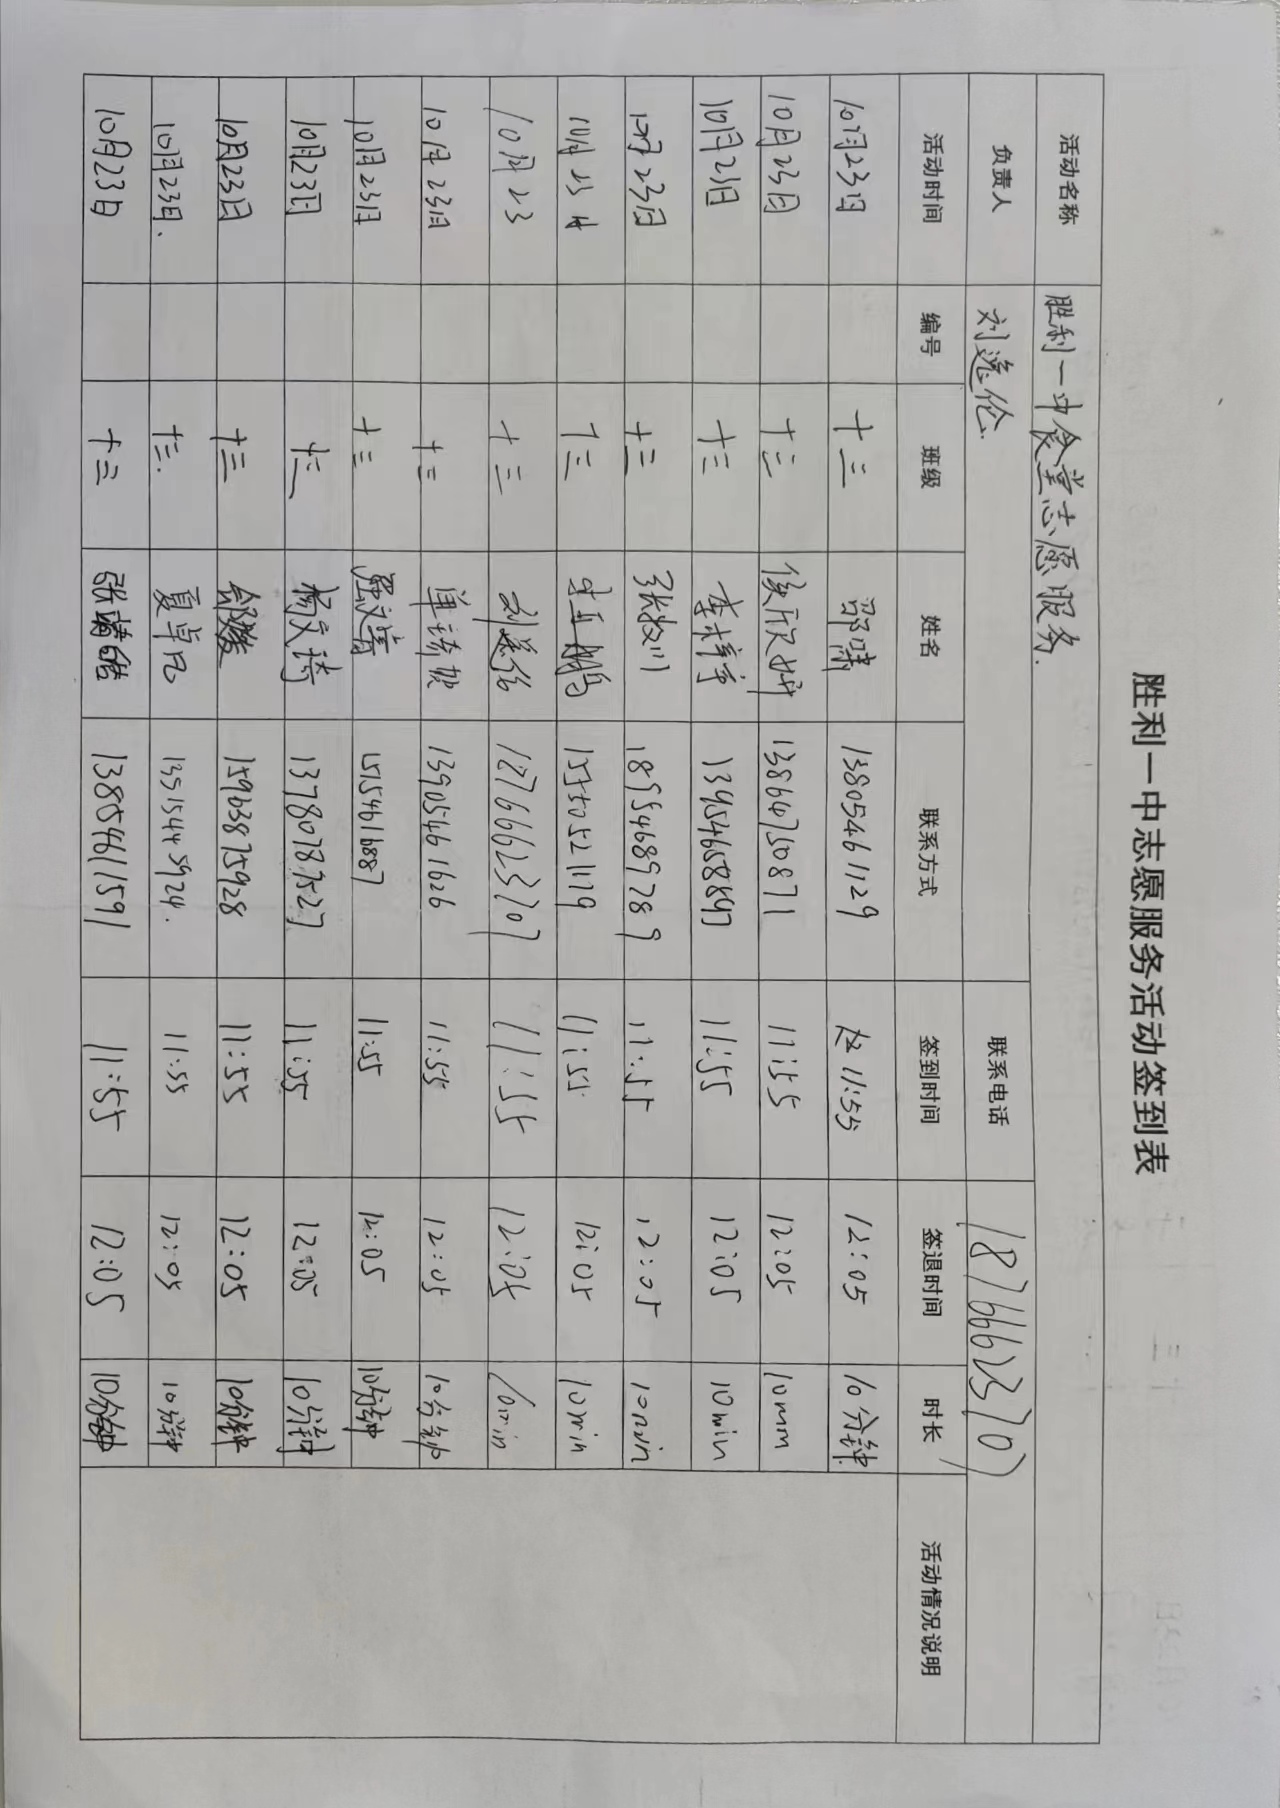 胜利一中志愿服务活动签到表
活动名称 胜利一中食堂志愿服务.
负责人 刘逸伦 联系电话 18766623707
活动时间 编号 班级 姓名 联系方式 签到时间 签退时间 时长 活动情况说明
10月23日 十三 邵啸 13805461129 11:55 12:05 10分钟
10月23日 十三 侯欣妍 13864750871 11:55 12:05 10min
10月23日 十三 李梓宁 13954658897 11:55 12:05 10min
10月23日 十三 张牧川 18954689789 11:55 12:05 10min
10月23日 十三 15550521179 11:55 12:05 10min
10月23 十三 刘逸伦 18766623707 11:55 12:05 10min
10月23日 十三 13905461626 11:55 12:05 10分钟
10月23日 十三 15154616887 11:55 12:05 10分钟
10月23日 十三 杨文琦 13780787527 11:55 12:05 10分钟
10月23日 十三 15963875928 11:55 12:05 10分钟
10月23日. 十三. 夏卓凡 13515445924. 11:55 12:05 10分钟
10月23日 十三 13805461591 11:55 12:05 10分钟